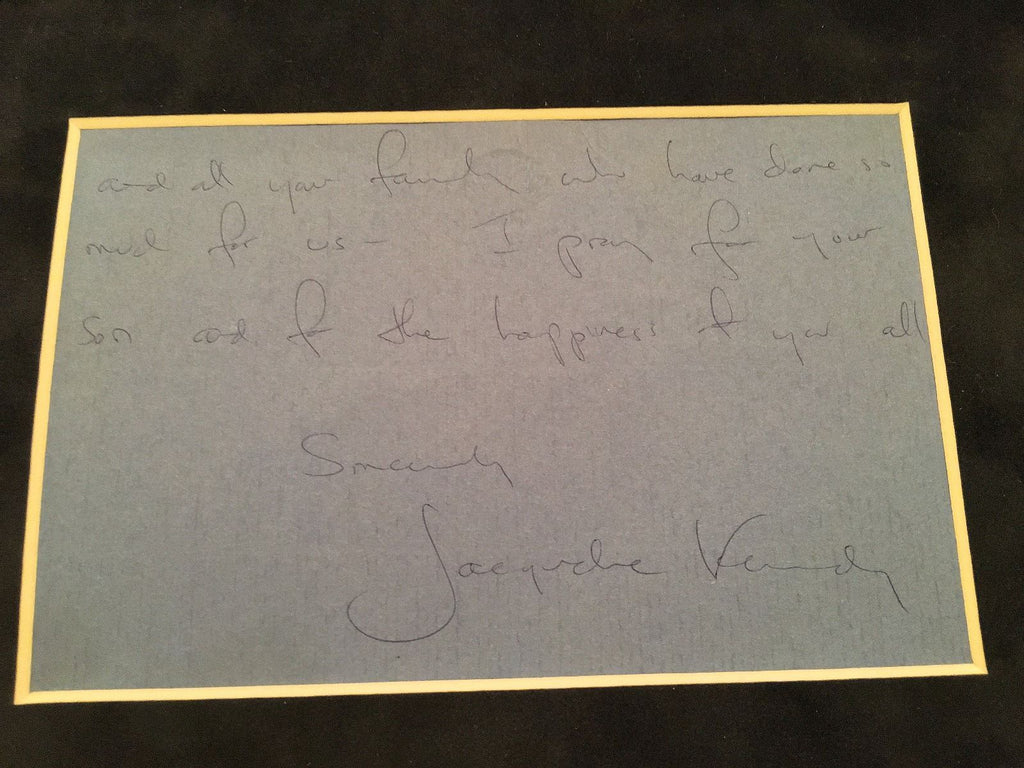 and all your family who have done so
much for us — I pray for your
son and for the happiness of you all
Sincerely
Jacqueline Kennedy